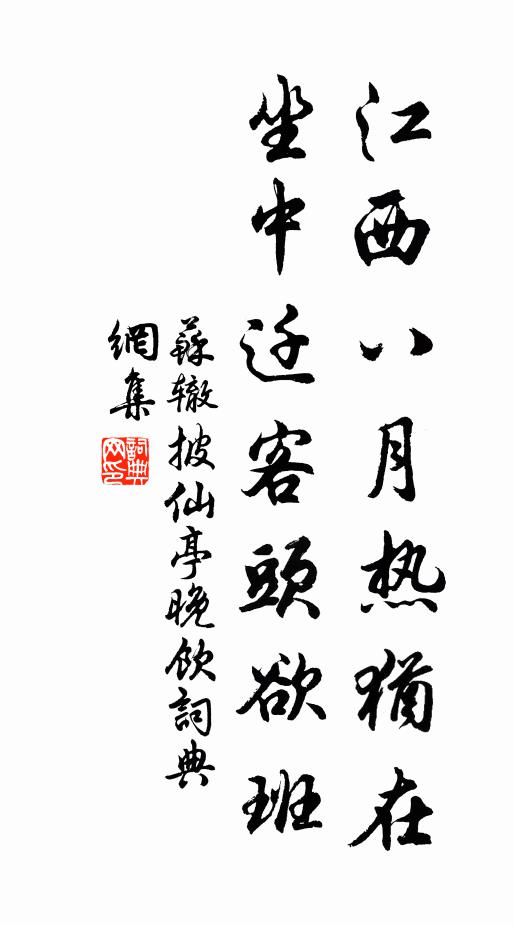 江西八月热猶在
坐中迁客頭欲班
蘇辙披仙亭晚飲詞典
網集
詞典网印